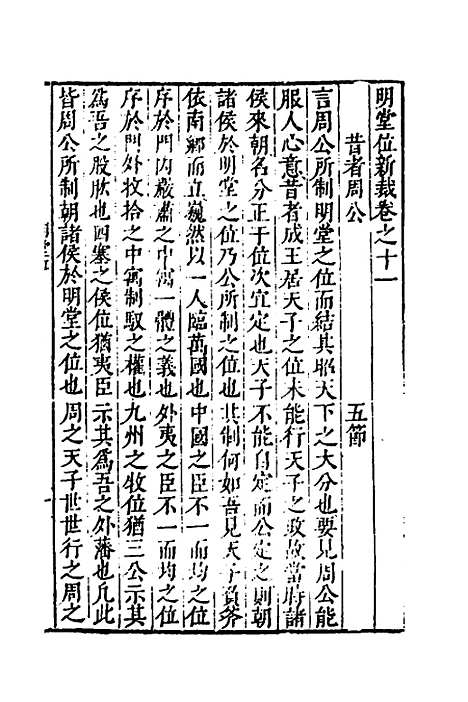 明堂位新裁卷之十一
昔者周公 五節
言周公所制明堂之位而結其昭天下之大分也要見周公能
服人心意昔者成王居天子之位未能行天子之政故當時諸
侯來朝名分正于位次宜定也天子不能自定而公定之則朝
諸侯於明堂之位乃公所制之位也其制何如吾見天子負斧
依南鄉而立巍然以一人臨萬國也中國之臣不一而均之位
序於門內嚴肅之中寓一體之義也外夷之臣不一而均之位
序於門外收拾之中寓制馭之權也九州之牧位猶三公示其
為吾之股肱也四塞之侯位猶夷臣示其為吾之外藩也凡此
皆周公所制朝諸侯於明堂之位也周之天子世世行之周之